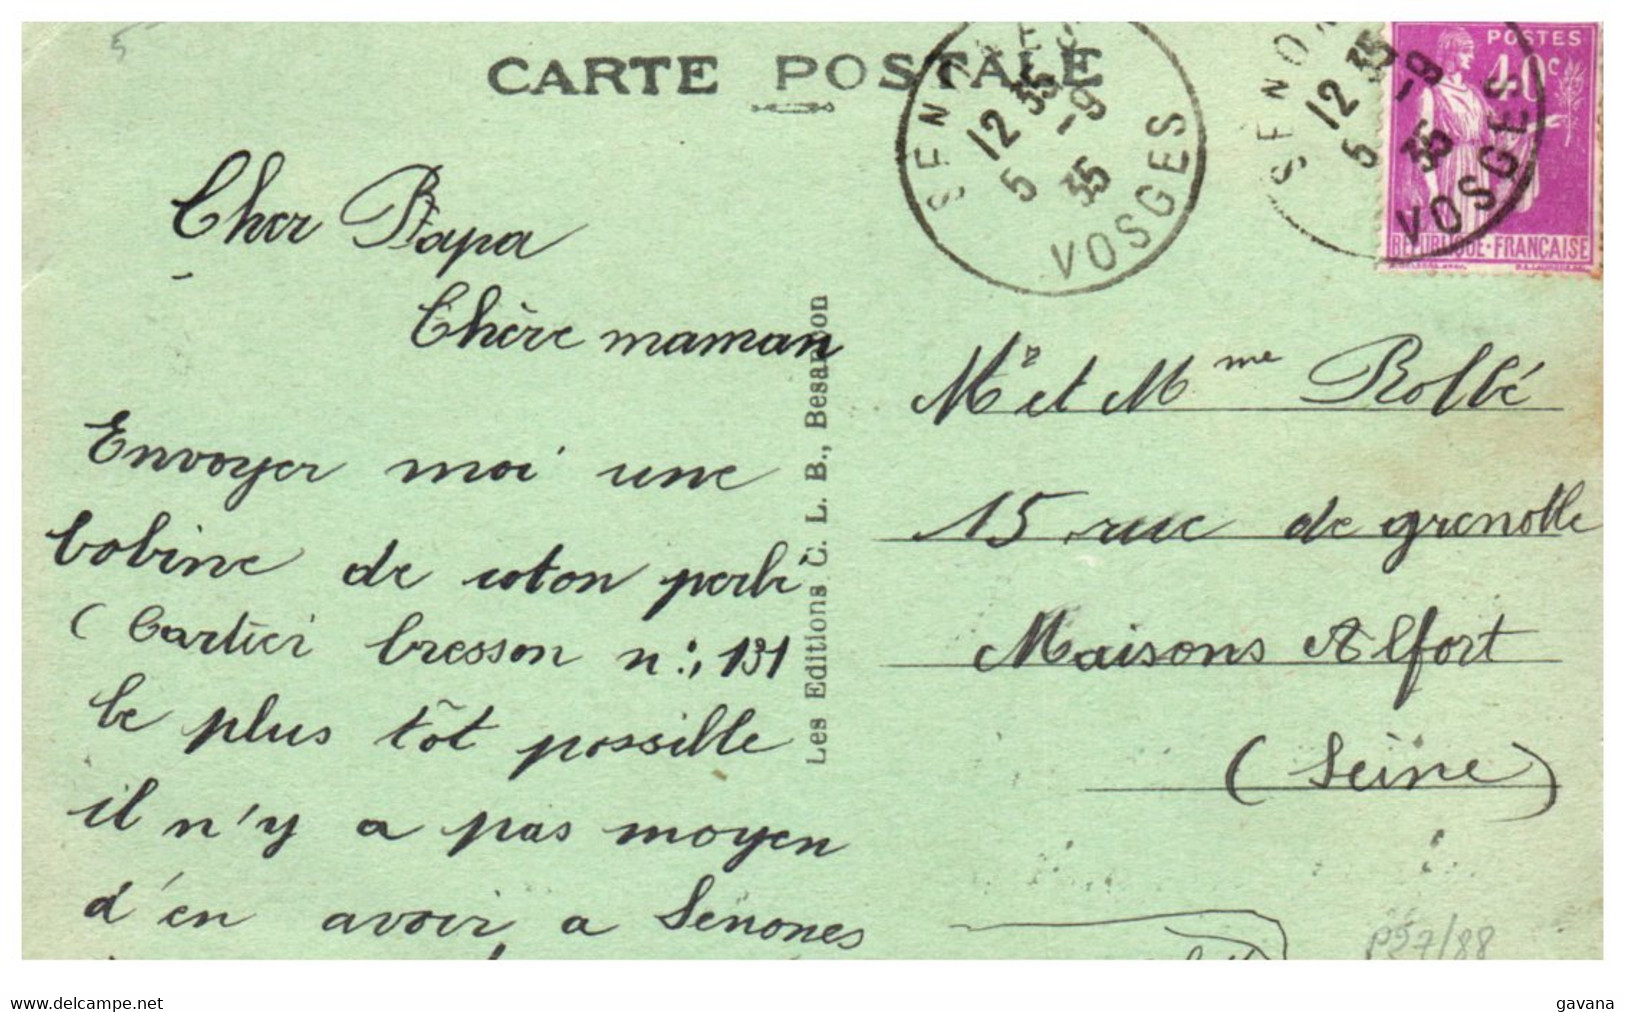 CARTE POSTALE
SENONES
12 35
5 -9
35
VOSGES
SENO
12 35
5 -9
35
VOSGES
POSTES
40c
REPUBLIQUE-FRANÇAISE
Cher Papa
Chère maman
Envoyer moi une
bobine de coton perlé
(Cartier bresson n: 131
le plus tôt possible
il n'y a pas moyen
d'en avoir a Senones
Les Editions C. L. B., Besançon
Mr et Mme Rollé
15 rue de grenolle
Maisons Alfort
(Seine)
P27/88
www.delcampe.net
gavana